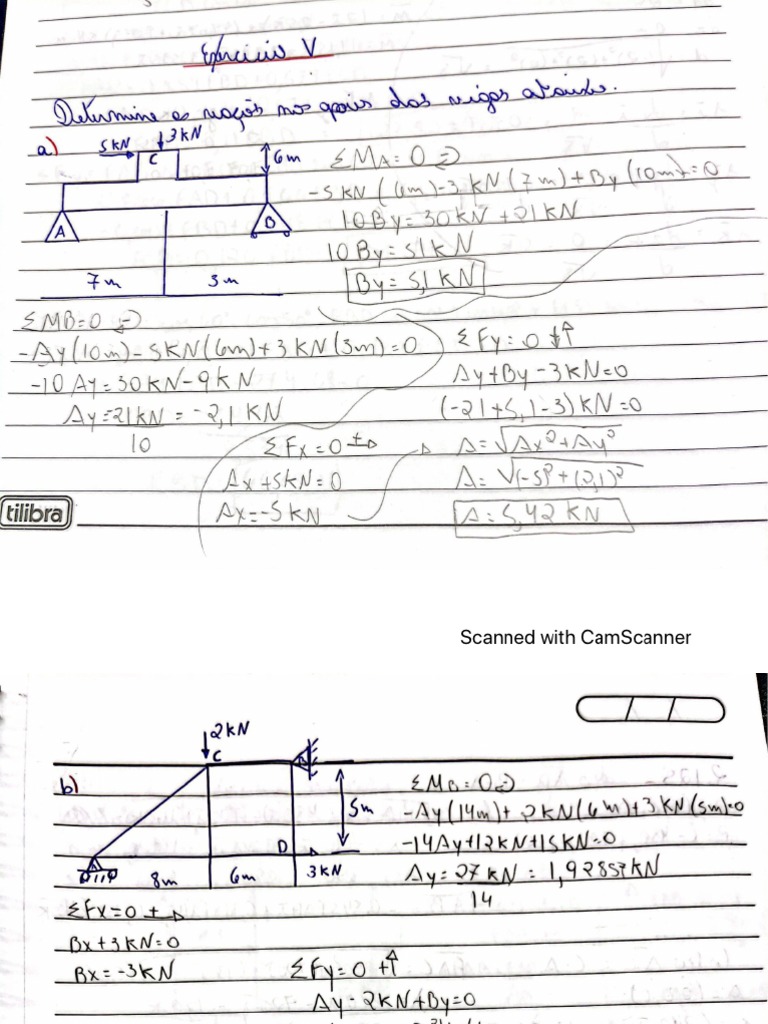 Exercício V
Determine as reações nos apoios das vigas abaixo.
a) 5kN 3kN C 6m
A B
7m 3m
ΣMA=0
-5kN(6m)-3kN(7m)+By(10m)=0
10By=30kN+21kN
10By=51kN
By=5,1kN
ΣMB=0
-Ay(10m)-5kN(6m)+3kN(3m)=0
-10Ay=30kN-9kN
Ay=21kN = -2,1kN
10
ΣFx=0 +→
Ax+5kN=0
Ax=-5kN
ΣFy=0 +↑
Ay+By-3kN=0
(-21+5,1-3)kN=0
A=√Ax²+Ay²
A=√(-5)²+(2,1)²
A=5,42kN
tilibra
Scanned with CamScanner
b) 2kN C
5m
D
A 8m 6m 3kN
ΣMB=0
-Ay(14m)+2kN(6m)+3kN(5m)=0
-14Ay+12kN+15kN=0
Ay=27kN = 1,92857kN
14
ΣFx=0 +→
Bx+3kN=0
Bx=-3kN
ΣFy=0 +↑
Ay-2kN+By=0